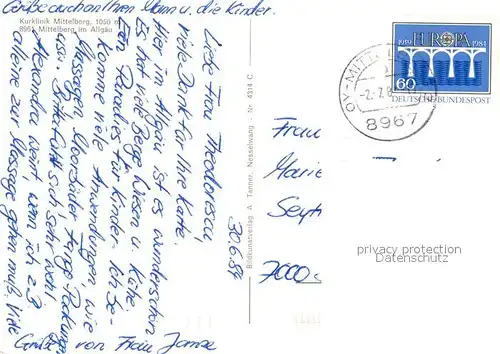 Grüße auch an Ihren Mann u. die Kinder.
Kurklinik Mittelberg, 1050 m
8961 Mittelberg im Allgäu
30.6.84
Liebe Frau Theodorescu,
vielen Dank für Ihre Karte.
Hier im Allgäu ist es wunderschön
Es hat viele Berge, Wiesen u. Kühe.
Ein Paradies für Kinder. Ich be-
komme viele Anwendungen, wie
Massagen, Moorbäder, Fango-Packungen
usw.
Alexandra fühlt sich sehr wohl
weint, wenn ich z.B.
alleine zur Massage gehen muß. Viele
Grüße von Frau
Bildkunstverlag A. Tanner, Nesselwang - Nr. 4314 C
1959 EUROPA 1984
60
DEUTSCHE BUNDESPOST
OY-MITTELB
-2.7.8
8967
Frau
Marie
Seyf
7000
privacy protection
Datenschutz